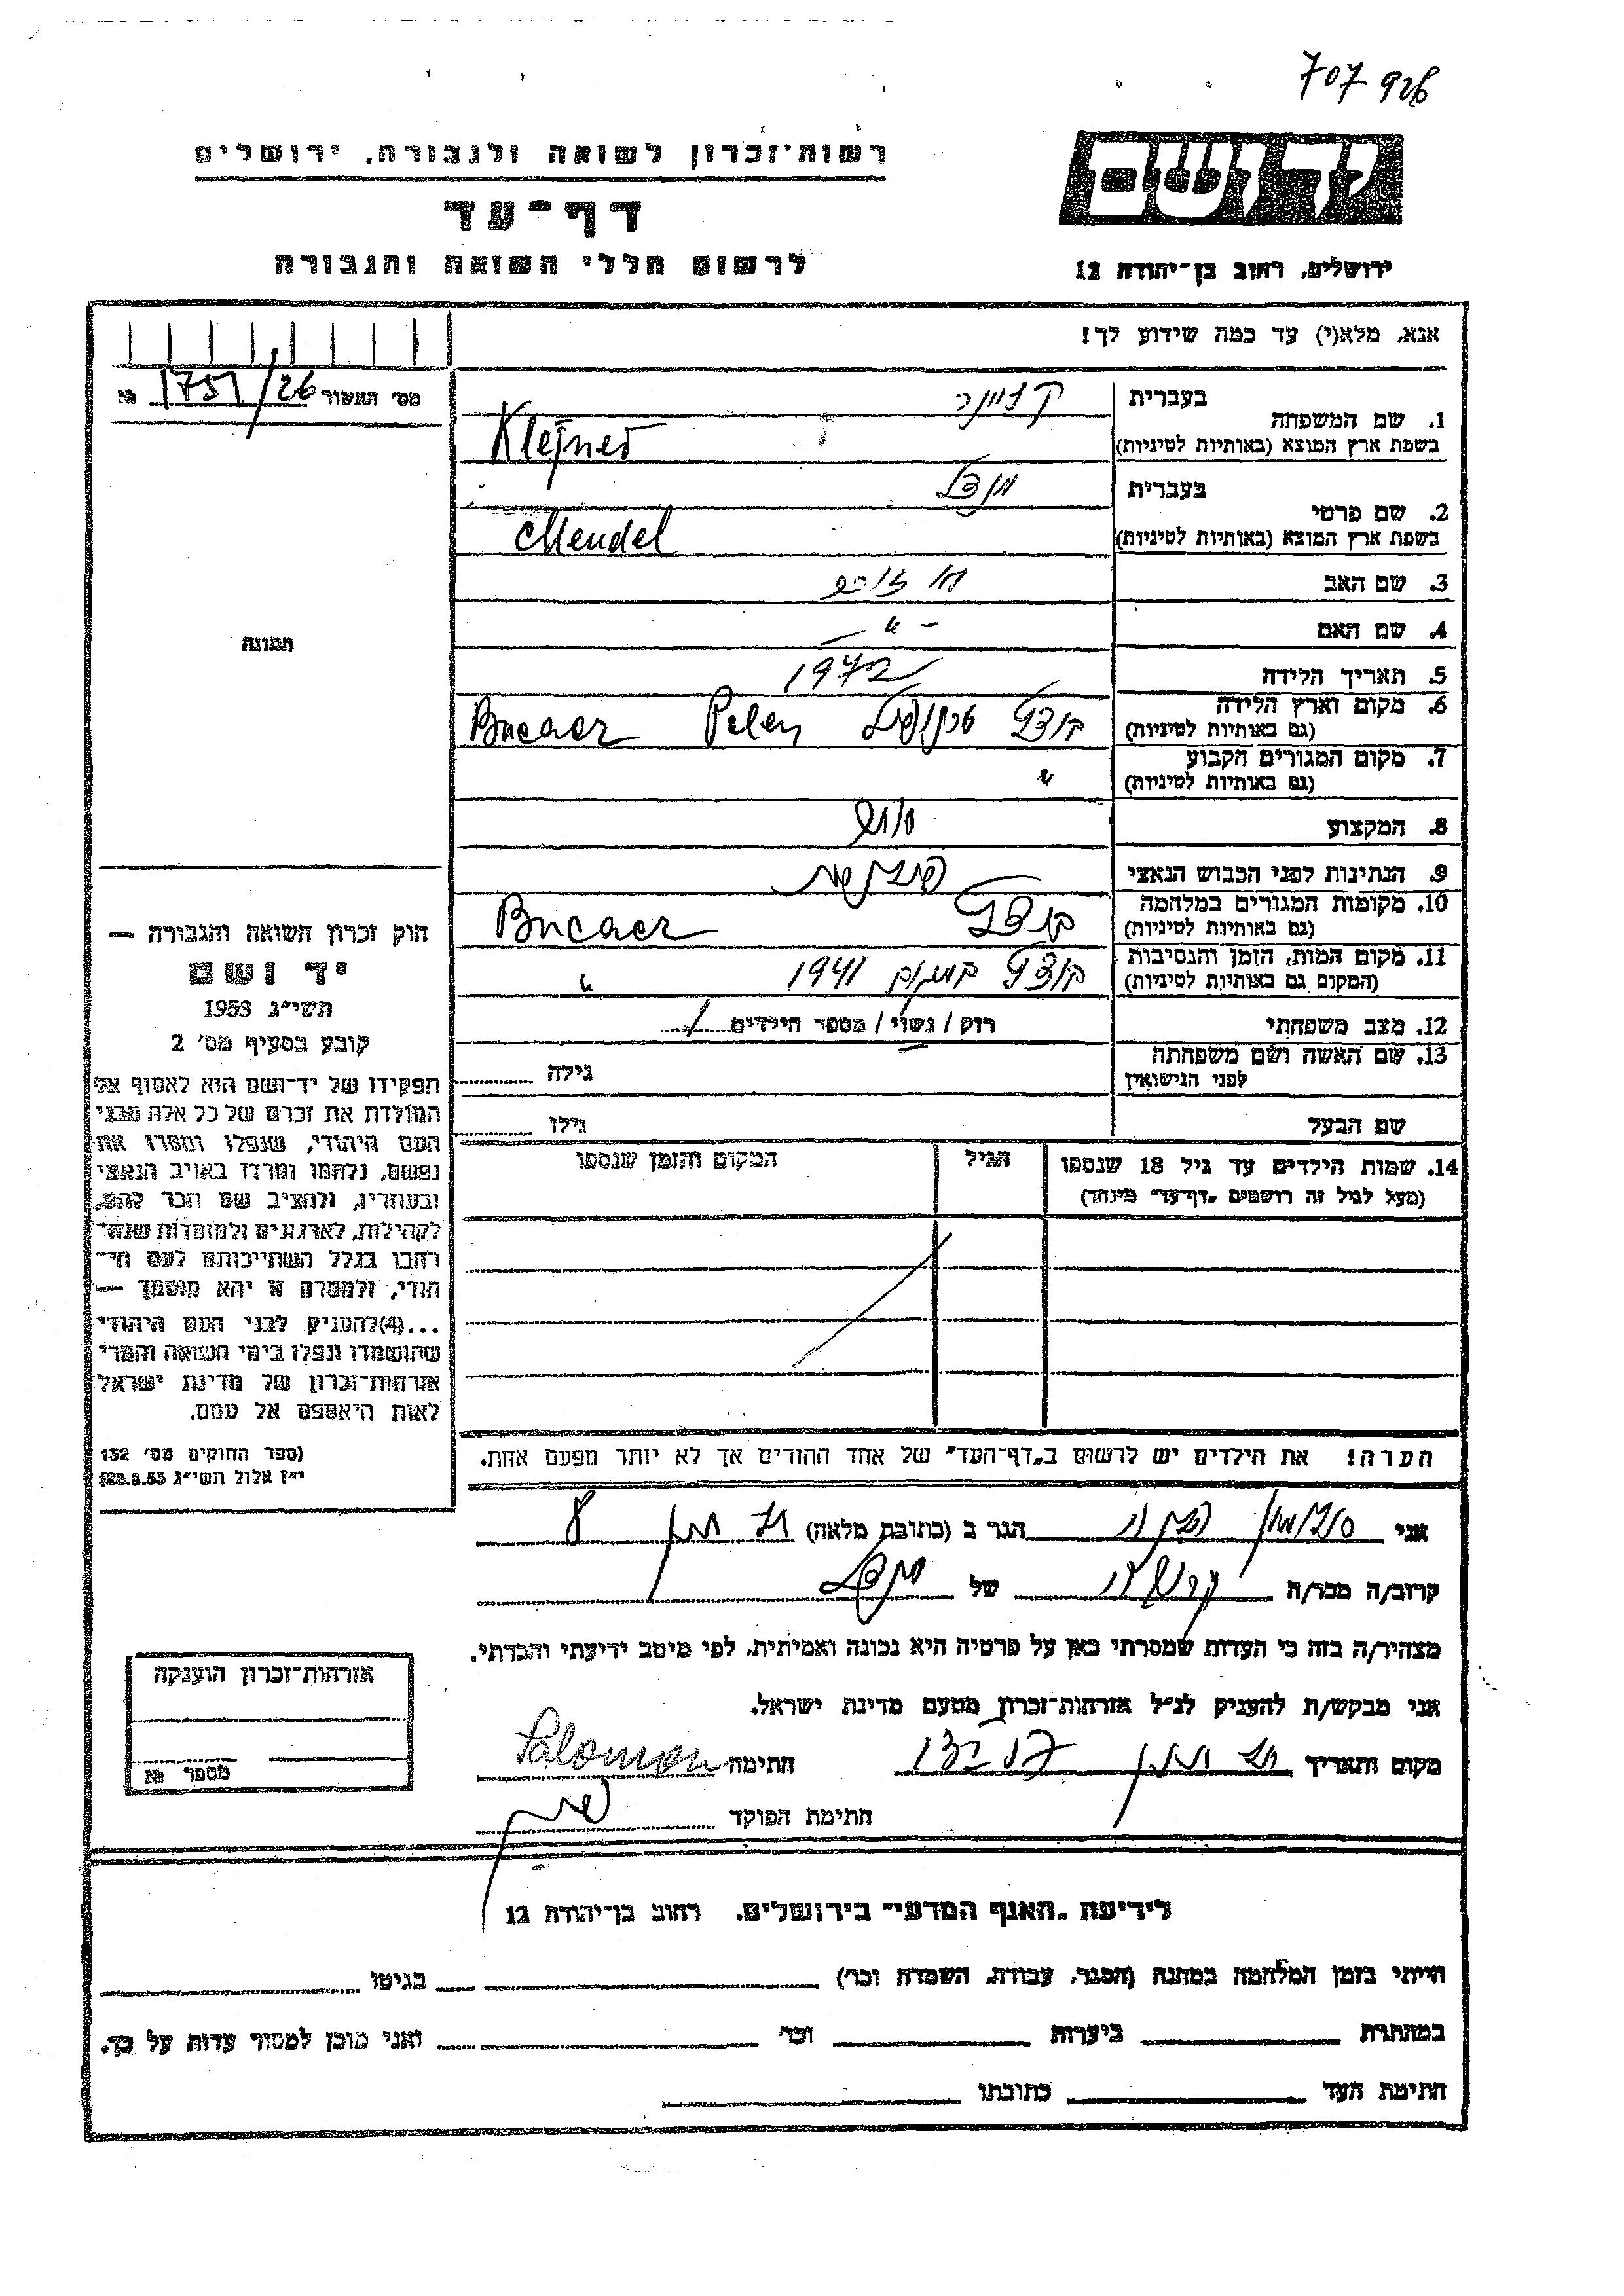 707 926
רשות־זכרון לשואה ולגבורה, ירושלים
דף־עד
לרשום חללי השואה והגבורה
יד ושם
ירושלים, רחוב בן־יהודה 12
אנא, מלא(י) עד כמה שידוע לך!
מס׳ האשור 1751/26 №
1. שם המשפחה
בעברית
בשפת ארץ המוצא (באותיות לטיניות) Klejner
2. שם פרטי
בעברית מנדל
בשפת ארץ המוצא (באותיות לטיניות) Mendel
3. שם האב
4. שם האם - " -
5. תאריך הלידה
6. מקום וארץ הלידה
(גם באותיות לטיניות) Bucacz Polen
7. מקום המגורים הקבוע "
(גם באותיות לטיניות)
8. המקצוע
9. הנתינות לפני הכבוש הנאצי
10. מקומות המגורים במלחמה
(גם באותיות לטיניות) Bucacz
11. מקום המות, הזמן והנסיבות 1941 "
(המקום גם באותיות לטיניות)
12. מצב משפחתי רוק / נשוי / מספר הילדים 1
13. שם האשה ושם משפחתה גילה
לפני הנישואין
שם הבעל גילו
14. שמות הילדים עד גיל 18 שנספו
(מעל לגיל זה רושמים "דף־עד" מיוחד)
הגיל
המקום והזמן שנספו
הערה! את הילדים יש לרשום ב"דף־העד" של אחד ההורים אך לא יותר מפעם אחת.
תמונה
חוק זכרון השואה והגבורה —
יד ושם
תשי״ג 1953
קובע בסעיף מס׳ 2
תפקידו של יד־ושם הוא לאסוף אל
המולדת את זכרם של כל אלה מבני
העם היהודי, שנפלו ומסרו את
נפשם, נלחמו ומרדו באויב הנאצי
ובעוזריו, ולהציב שם וזכר להם,
לקהילות, לארגונים ולמוסדות שנח־
רבו בגלל השתייכותם לעם הי־
הודי, ולמטרה זו יהא מוסמך —
...(4) להעניק לבני העם היהודי
שהושמדו ונפלו בימי השואה והמרי
אזרחות־זכרון של מדינת ישראל
לאות היאספם אל עמם.
(ספר החוקים מס׳ 132
י״ז אלול תשי״ג 28.8.53)
אני הגר ב (כתובת מלאה) 8
קרוב/ה מכר/ה של מנדל
מצהיר/ה בזה כי העדות שמסרתי כאן על פרטיה היא נכונה ואמיתית, לפי מיטב ידיעתי והכרתי.
אני מבקש/ת להעניק לנ״ל אזרחות־זכרון מטעם מדינת ישראל.
מקום ותאריך חתימה Salomon
חתימת הפוקד
אזרחות־זכרון הוענקה
מספר №
לידיעת "האגף המדעי" בירושלים. רחוב בן־יהודה 12
הייתי בזמן המלחמה במחנה (הסגר, עבודה, השמדה וכו׳) בגיטו
במחתרת ביערות וכו׳ ואני מוכן למסור עדות על כך.
חתימת העד כתובתו